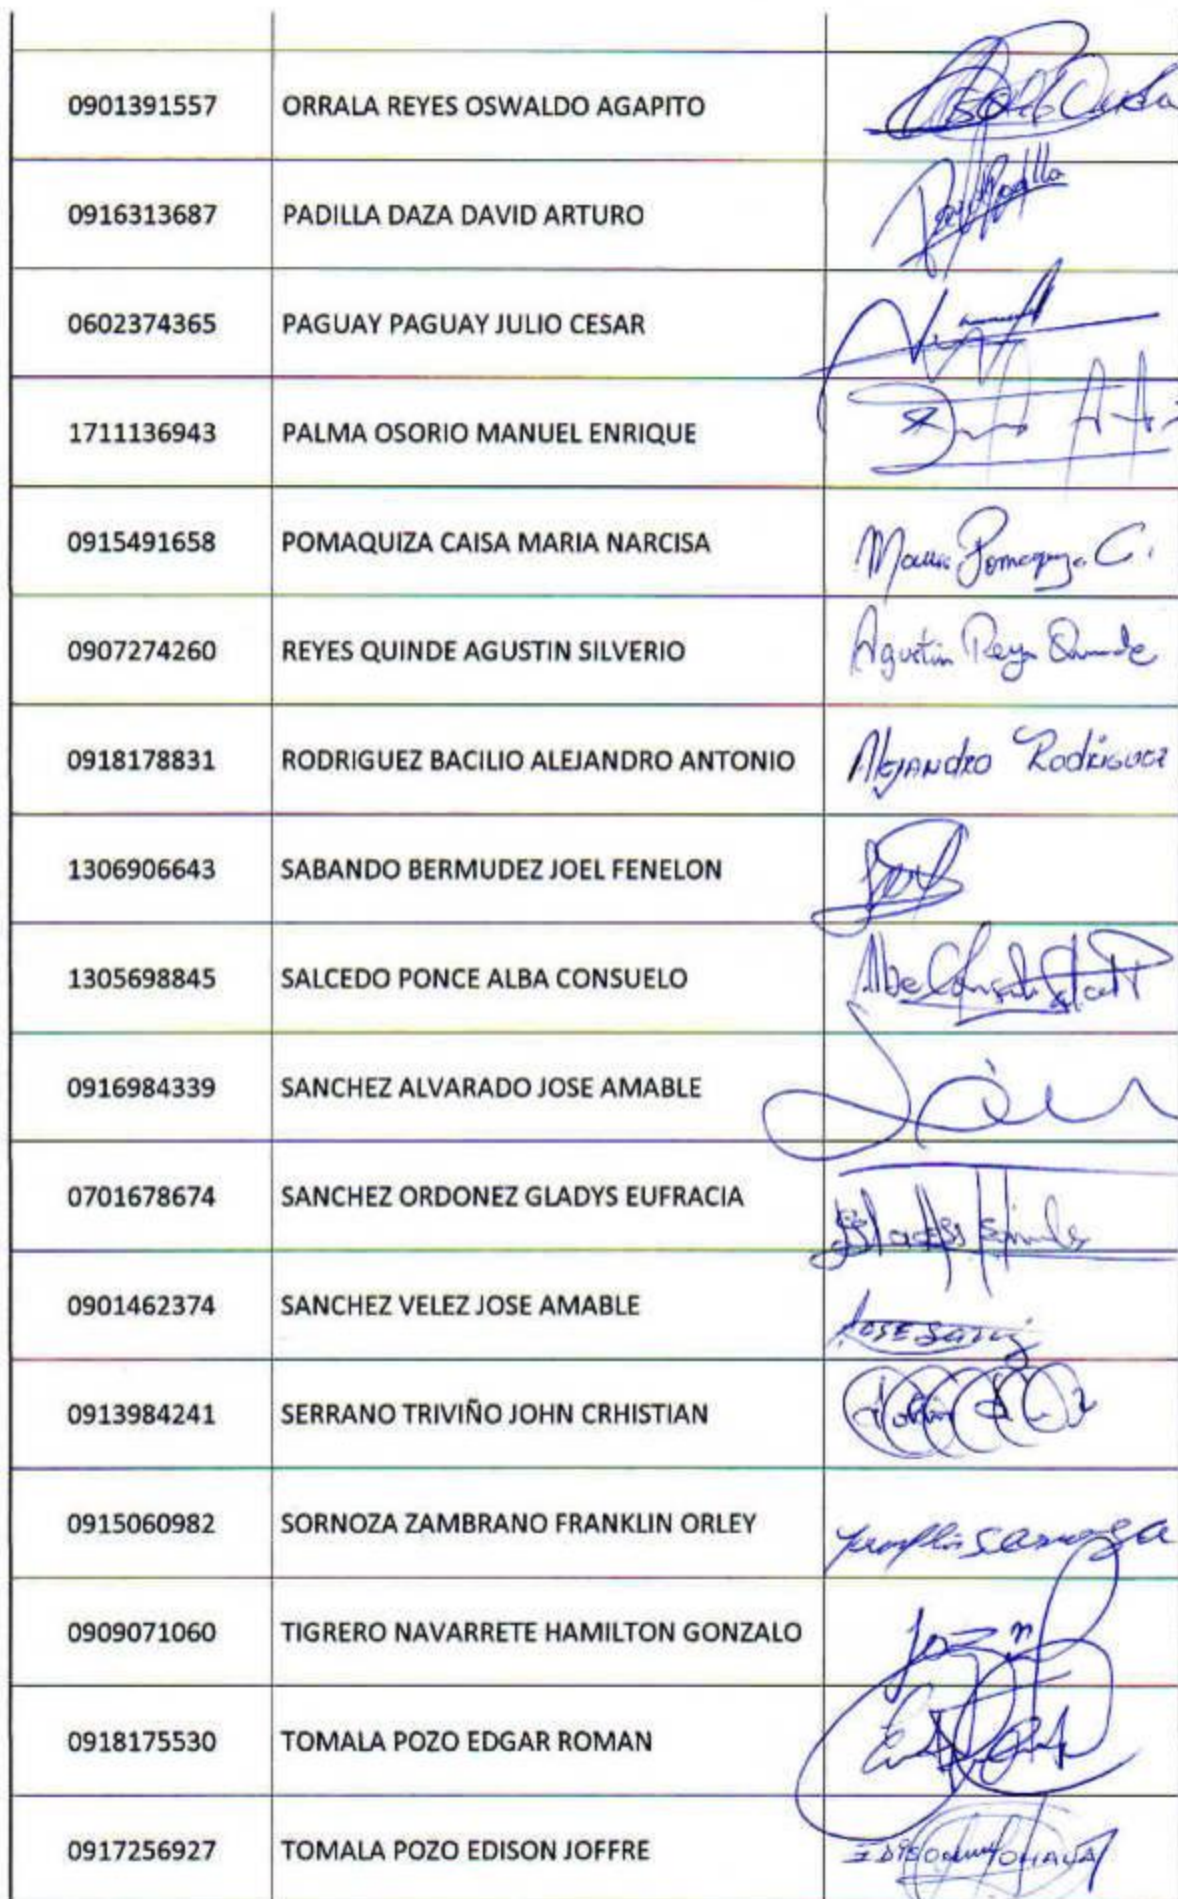 0901391557 ORRALA REYES OSWALDO AGAPITO
0916313687 PADILLA DAZA DAVID ARTURO Padilla
0602374365 PAGUAY PAGUAY JULIO CESAR
1711136943 PALMA OSORIO MANUEL ENRIQUE
0915491658 POMAQUIZA CAISA MARIA NARCISA Maria Pomaquiza C.
0907274260 REYES QUINDE AGUSTIN SILVERIO Agustin Reyes Quinde
0918178831 RODRIGUEZ BACILIO ALEJANDRO ANTONIO Alejandro Rodriguez
1306906643 SABANDO BERMUDEZ JOEL FENELON
1305698845 SALCEDO PONCE ALBA CONSUELO Alba Consuelo
0916984339 SANCHEZ ALVARADO JOSE AMABLE
0701678674 SANCHEZ ORDONEZ GLADYS EUFRACIA Gladys
0901462374 SANCHEZ VELEZ JOSE AMABLE JOSE
0913984241 SERRANO TRIVIÑO JOHN CRHISTIAN
0915060982 SORNOZA ZAMBRANO FRANKLIN ORLEY
0909071060 TIGRERO NAVARRETE HAMILTON GONZALO
0918175530 TOMALA POZO EDGAR ROMAN
0917256927 TOMALA POZO EDISON JOFFRE EDISON TOMALA